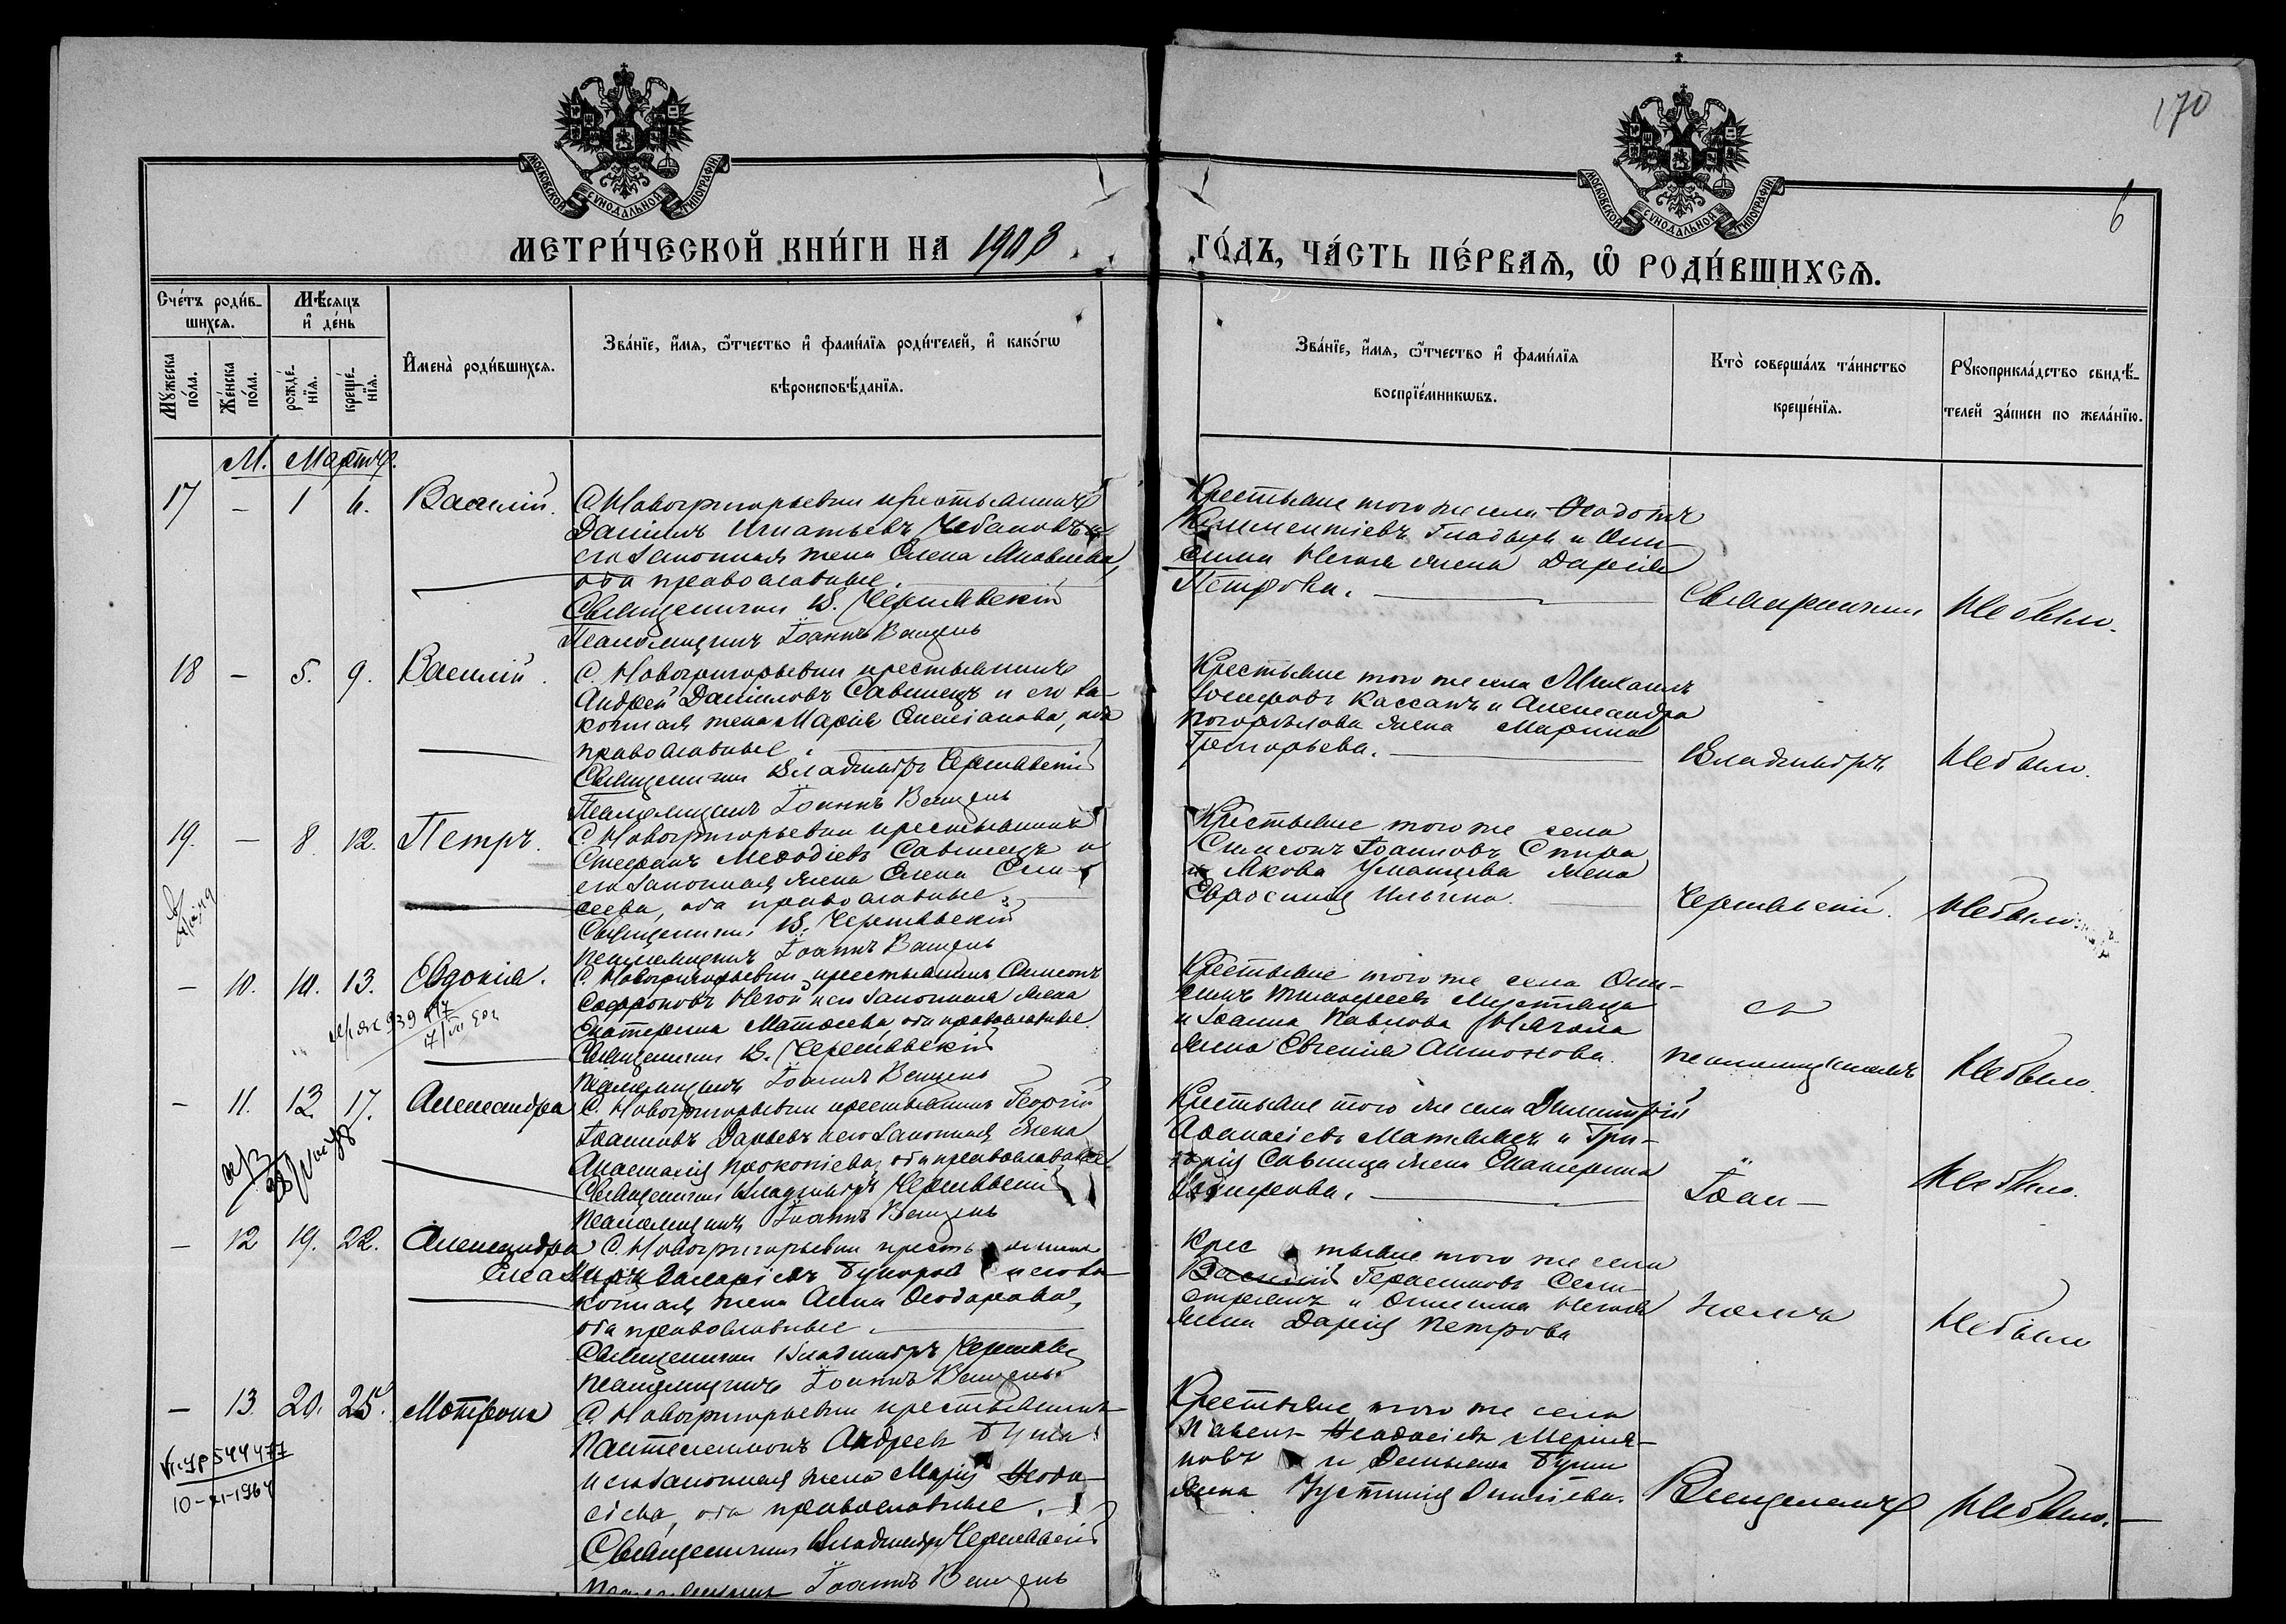 170
6
МОСКОВСКОЙ СѴНОДАЛЬНОЙ ТИПОГРАФІИ
МОСКОВСКОЙ СѴНОДАЛЬНОЙ ТИПОГРАФІИ
МЕТРИ́ЧЕСКОЙ КНИ́ГИ НА 1903
ГО́ДЪ, ЧА́СТЬ ПЕ́РВАѦ, Ѡ РОДИ́ВШИХСѦ.
Сче́тъ роди́в-
шихсѧ.
Мѣ́сѧцъ
и҆ де́нь
Мꙋ́жеска
по́ла.
Же́нска
по́ла.
рожде́-
нїѧ.
креще́-
нїѧ.
И҆мена̀ роди́вшихсѧ.
Зва́нїе, и҆́мѧ, ѻ҆́тчество и҆ фами́лїѧ роди́телей, и҆ како́гѡ
вѣроисповѣ́данїѧ.
Зва́нїе, и҆́мѧ, ѻ҆́тчество и҆ фами́лїѧ
воспрїе́мникѡвъ.
Кто̀ соверша́лъ та́инство
креще́нїѧ.
Рꙋкоприкла́дство свидѣ́-
телей за́писи по жела́нїю.
М. Мартъ.
17 — 1 6. Василій.
С. Новогригорьевки крестьянинъ
Даніилъ Игнатьевъ Чебановъ и
его законная жена Елена Яковлева,
оба православные.
Священникъ В. Чернявскій
Псаломщикъ Іоаннъ Венцель
Крестьяне того же села Ѳеодотъ
Климентіевъ Гладырь и Они-
сима Негоя жена Дарія
Петрова.
Священникъ
Не было.
18 — 5. 9. Василій.
С. Новогригорьевки крестьянинъ
Андрей Даніиловъ Савинецъ и его за-
конная жена Марія, оба
православные.
Священникъ Владиміръ Чернявскій
Псаломщикъ Іоаннъ Венцель
Крестьяне того же села Михаилъ
Іосифовъ Кассанъ и Александра
Погорѣлова жена Марина
Григорьева.
Владиміръ
Не было.
19. — 8. 12. Петръ.
С. Новогригорьевки крестьянинъ
Стефанъ Меѳодіевъ Савинецъ и
его законная жена Елена Ели-
сеева, оба православные.
Священникъ В. Чернявскій
Псаломщикъ Іоаннъ Венцель
Крестьяне того же села
Симеонъ Іоанновъ Спира
и Якова Уманцева жена
Евросинія Ильина.
Чернявскій.
Не было.
— 10. 10. 13. Евдокія.
С. Новогригорьевки крестьянинъ Симеонъ
Софроновъ Негой и его законная жена
Екатерина Матѳеева, оба православные.
Священникъ В. Чернявскій
Псаломщикъ Іоаннъ Венцель
Крестьяне того же села Они-
симъ Тимоѳеевъ
и Іоанна Павлова
жена Евгенія Антонова.
съ
псаломщикомъ
Не было.
— 11. 13. 17. Александра
С. Новогригорьевки крестьянинъ Георгій
Іоанновъ и его законная жена
Анастасія Прокопіева, оба православные.
Священникъ Владиміръ Чернявскій
Псаломщикъ Іоаннъ Венцель
Крестьяне того же села Димитрій
Аѳанасіевъ и Гри-
горія Савинца жена Екатерина
Іоан—
Не было.
— 12 19. 22. Александра
С. Новогригорьевки крестьянинъ
и его за-
конная жена Анна Ѳеодорова,
оба православные.
Священникъ Владиміръ Чернявскій
Псаломщикъ Іоаннъ Венцель
Крестьяне того же села
Василій Герасимовъ Сели-
и Онисима Негоя
жена Дарія Петрова
номъ
Не было
— 13. 20. 25. Мотрона
С. Новогригорьевки крестьянинъ
Пантелеимонъ Андреевъ
и его законная жена Марія Ѳеодо-
сіева, оба православные.
Священникъ Владиміръ Чернявскій
Псаломщикъ Іоаннъ Венцель
Крестьяне того же села
Павелъ Ѳеодосіевъ
новъ и Демьяна
жена Устинія
Венцелемъ
Не было.
544477
10-XI-1964